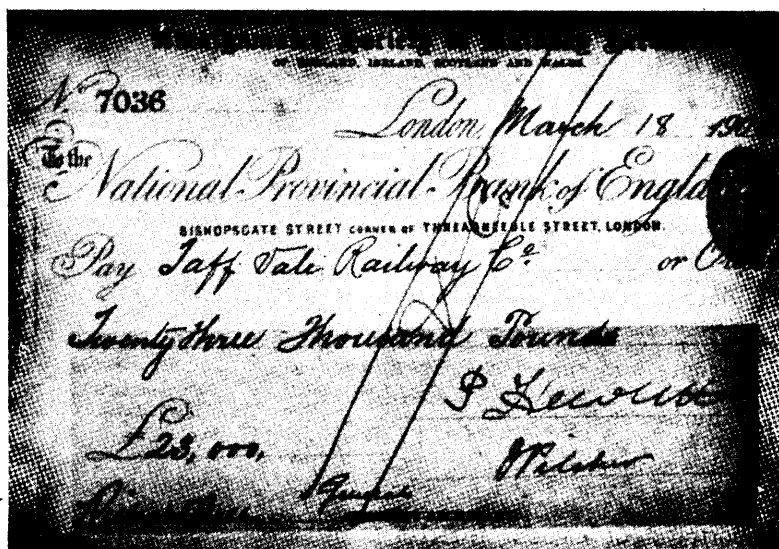 Amalgamated Society of Railway Servants
OF ENGLAND, IRELAND, SCOTLAND AND WALES.
No 7036
London, March 18 190
To the
National Provincial Bank of Engla
BISHOPSGATE STREET CORNER OF THREADNEEDLE STREET, LONDON.
Pay Taff Vale Railway Co. or Or
Twenty three Thousand Pounds
£23,000,